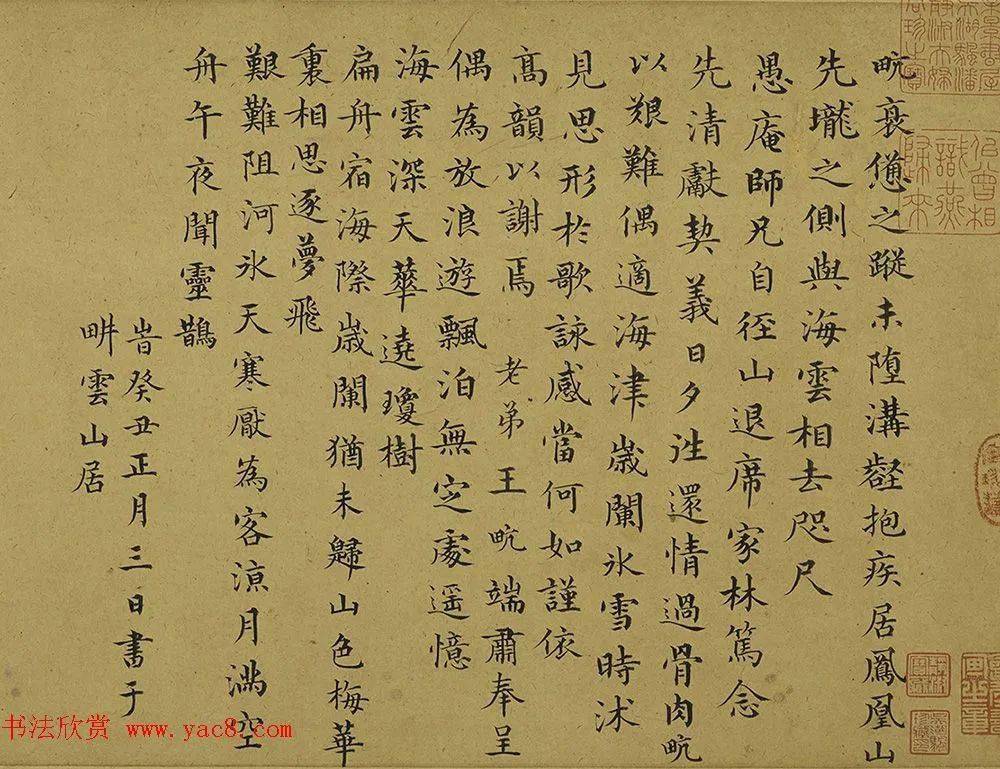 畹衰憊之蹤未墮溝壑抱疾居鳳凰山
先壠之側與海雲相去咫尺
愚庵師兄自徑山退席家林篤念
先清獻契義日夕往還情過骨肉畹
以艱難偶適海津歲闌氷雪時沭
見思形於歌詠感當何如謹依
髙韻以謝焉 老弟王畹端肅奉呈
偶為放浪遊飄泊無定處遥憶
海雲深天華遶瓊樹
扁舟宿海際歲闌猶未歸山色梅華
裏相思逐夢飛
艱難阻河氷天寒厭為客涼月滿空
舟午夜聞靈鵲
旹癸丑正月三日書于
畊雲山居
书法欣赏 www.yac8.com